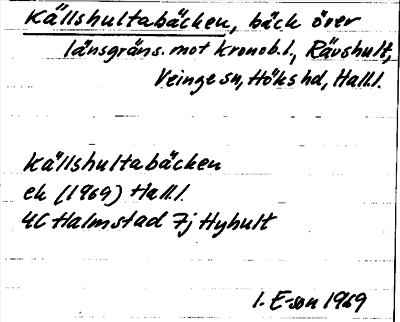 Källshultabäcken, bäck över
länsgräns. mot kronob.l., Rävshult,
Veinge sn, Höks hd, Hall.l.
Källshultabäcken
ek (1969) Hall.l.
4C Halmstad 7j Hyhult
I. E-son 1969